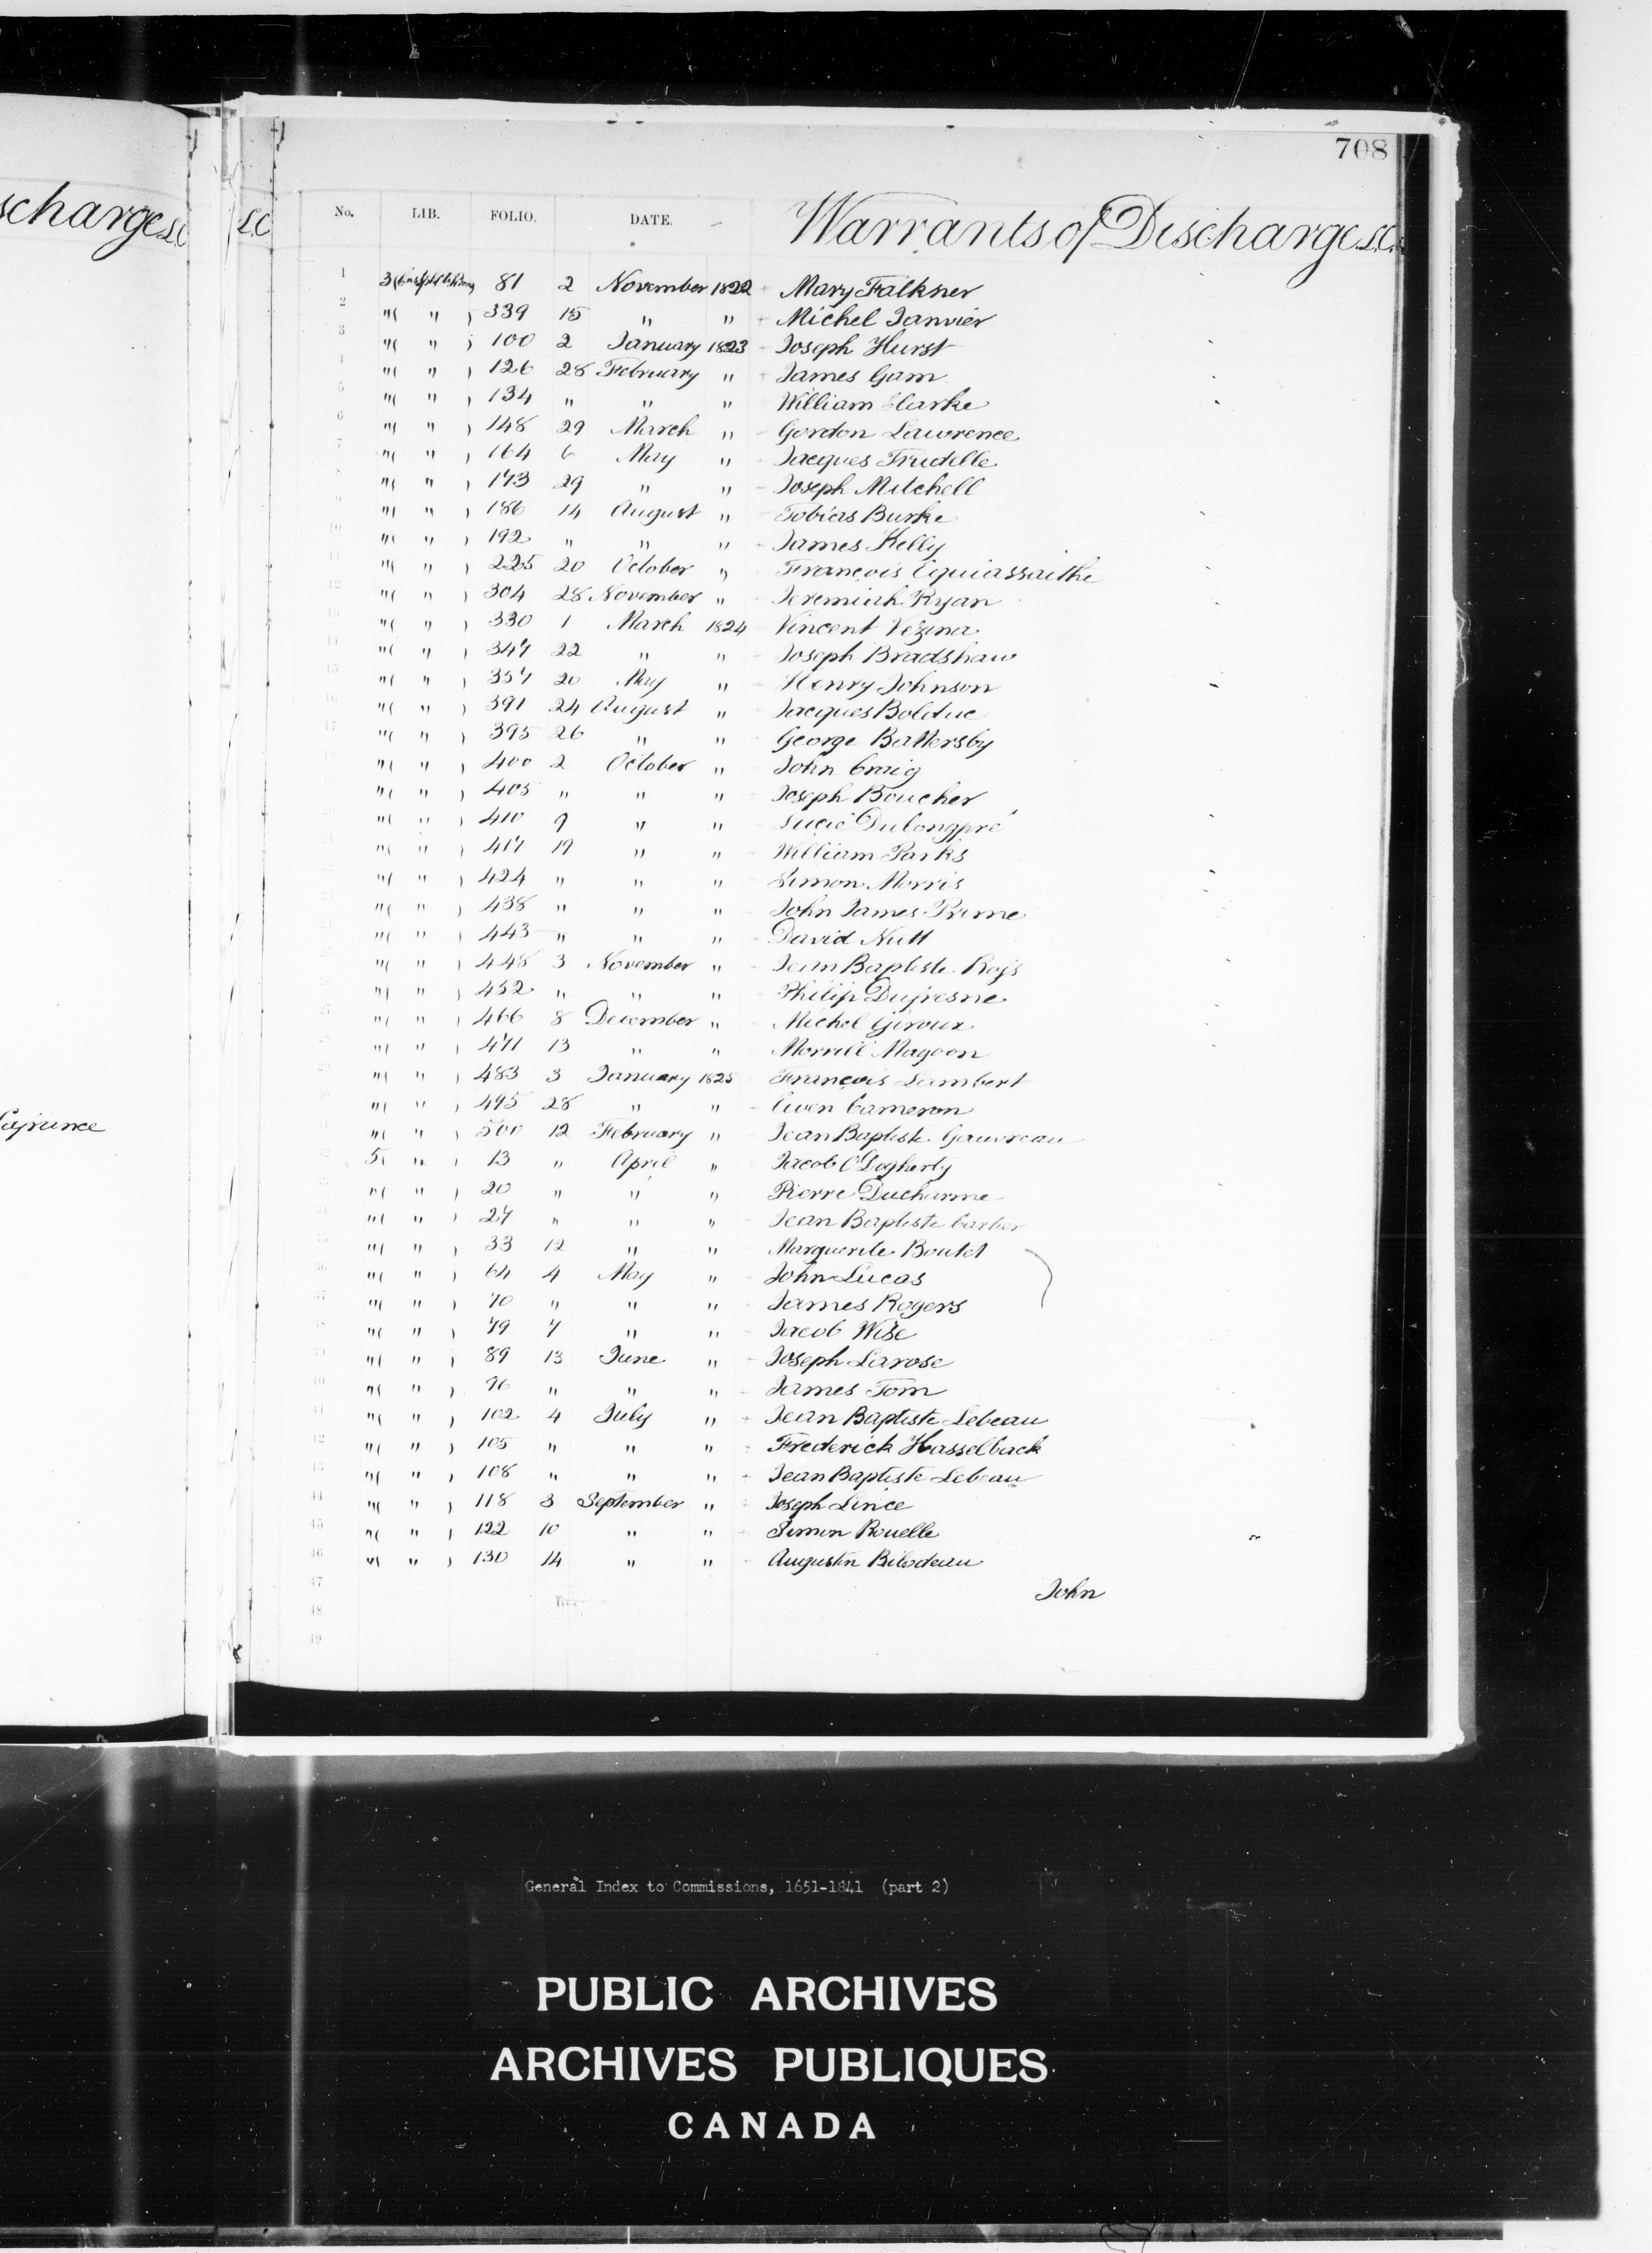 scharges LC
LC
Lajeunee
708
No. LIB. FOLIO. DATE. Warrants of Discharge LC
1 3 ( 81 2 November 1822 Mary Falkner
2 "( " ) 339 15 " " Michel Janvier
3 "( " ) 100 2 January 1823 Joseph Hurst
4 "( " ) 126 28 February " James Gam
5 "( " ) 134 " " " William Clarke
6 "( " ) 148 29 March " Gordon Lawrence
7 "( " ) 164 6 May " Jacques Trudelle
8 "( " ) 173 29 " " Joseph Mitchell
9 "( " ) 186 14 August " Tobias Burke
10 "( " ) 192 " " " James Kelly
11 "( " ) 225 20 October " François Equiassaithe
12 "( " ) 304 28 November " Jeremiah Ryan
13 "( " ) 330 1 March 1824 Vincent Vezina
14 "( " ) 347 22 " " Joseph Bradshaw
15 "( " ) 357 20 May " Henry Johnson
16 "( " ) 391 24 August " Jacques Bolduc
17 "( " ) 395 26 " " George Battersby
18 "( " ) 400 2 October " John Craig
19 "( " ) 405 " " " Joseph Boucher
20 "( " ) 410 9 " " Lucie Dulongpré
21 "( " ) 417 19 " " William Parks
22 "( " ) 424 " " " Simon Morris
23 "( " ) 438 " " " John James Prime
24 "( " ) 443 " " " David Nutt
25 "( " ) 448 3 November " Jean Baptiste Rofs
26 "( " ) 452 " " " Philip Dufresne
27 "( " ) 466 8 December " Michel Giroux
28 "( " ) 471 13 " " Morrill Magoon
29 "( " ) 483 3 January 1825 François Lambert
30 "( " ) 495 28 " " Ewen Cameron
31 "( " ) 500 12 February " Jean Baptiste Gauvreau
32 5( " ) 13 " April " Jacob O'Dogherty
33 "( " ) 20 " " " Pierre Ducharme
34 "( " ) 27 " " " Jean Baptiste Cartier
35 "( " ) 33 12 " " Marguerite Boutet
36 "( " ) 64 4 May " John Lucas
37 "( " ) 70 " " " James Rogers
38 "( " ) 79 7 " " Jacob Wise
39 "( " ) 89 13 June " Joseph Larose
40 "( " ) 96 " " " James Tom
41 "( " ) 102 4 July " Jean Baptiste Lebeau
42 "( " ) 105 " " " Frederick Hasselback
43 "( " ) 108 " " " Jean Baptiste Lebeau
44 "( " ) 118 3 September " Joseph Lince
45 "( " ) 122 10 " " Simon Rouelle
46 "( " ) 130 14 " " Augustin Bilodeau
47 John
48
49
General Index to Commissions, 1651-1841 (part 2)
PUBLIC ARCHIVES
ARCHIVES PUBLIQUES
CANADA